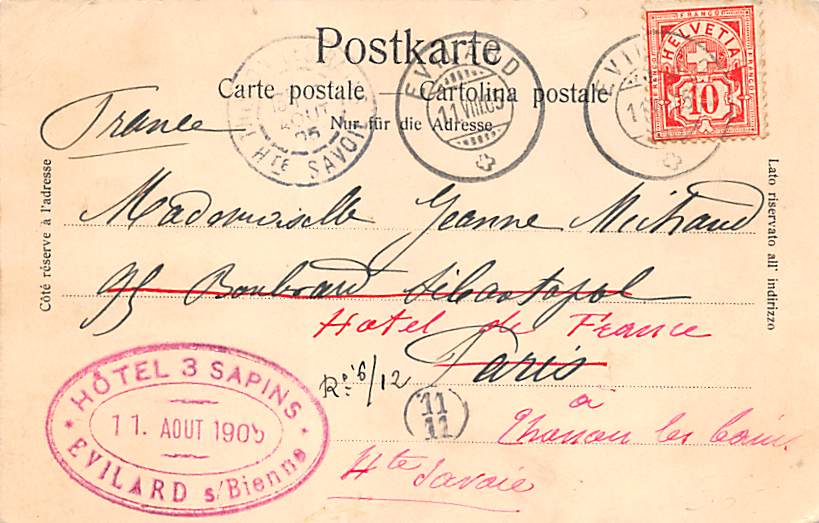 Postkarte
Carte postale — Cartolina postale
Nur für die Adresse.
Côté réservé à l'adresse
Lato riservato all' indirizzo
FRANCO
HELVETIA
FRANCO
FRANCO
10
EVILARD
11.VIII.05
EVIL
11
AOUT
05
HTE SAVOIE
France
Mademoiselle Jeanne Michaud
95 Boulevard Sébastopol
Hotel de France
Paris
à
Thonon les bains
Hte Savoie
Rº 6/12
11
11
HÔTEL 3 SAPINS
11. AOUT 1905
EVILARD s/Bienne